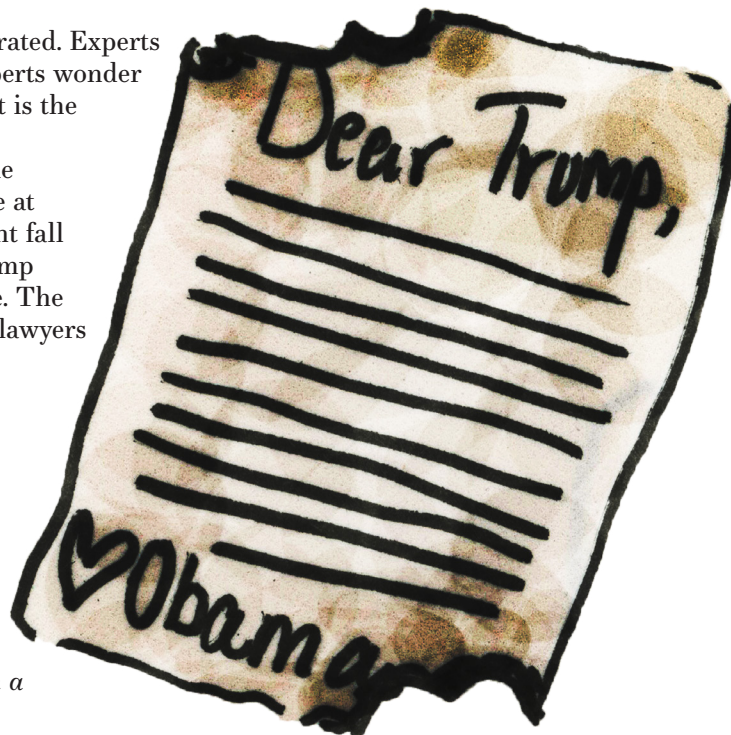 rated. Experts
perts wonder
t is the
e
e at
nt fall
mp
e. The
lawyers
a
Dear Trump,
♥Obama